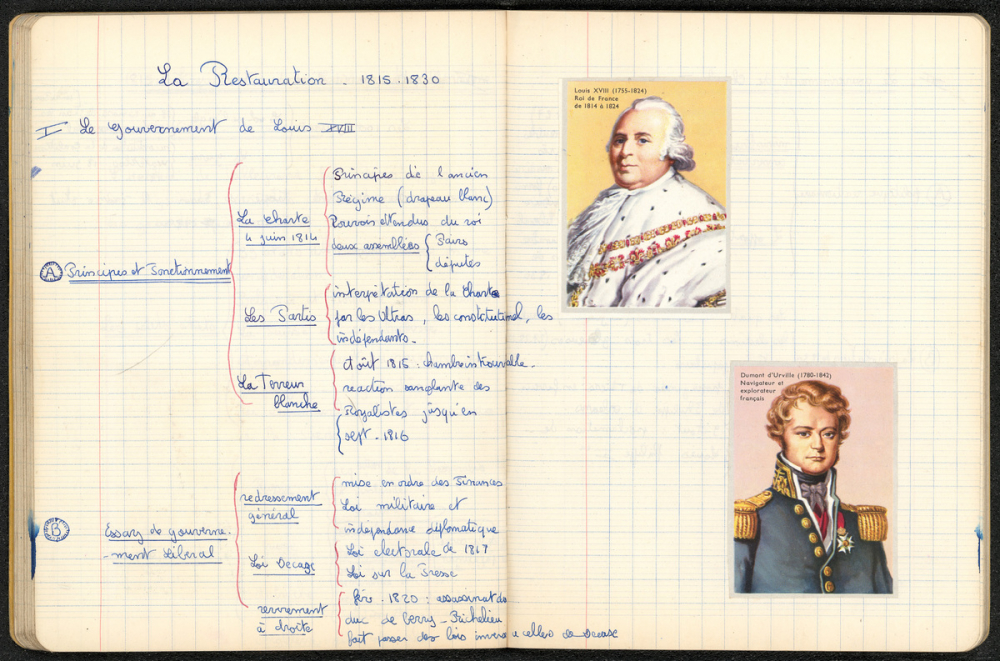 La Restauration - 1815-1830
I Le Gouvernement de Louis XVIII
A Principes et Fonctionnement
La charte
4 juin 1814
Principes de l'ancien
Régime (drapeau blanc)
Pouvoirs étendus du roi
deux assemblées
Pairs
députés
Les Partis
interprétation de la Charte
par les Ultras, les constitutionnel, les
indépendants.
La Terreur
blanche
Août 1815 : chambre introuvable.
reaction sanglante des
Royalistes jusqu'en
sept. 1816
B Essay de gouverne-
-ment Libéral
redressement
général
mise en ordre des Finances
Loi militaire et
indépendance diplomatique
Loi Decaze
Loi électorale de 1817
Loi sur la Presse
revirement
à droite
fév. 1820 : assassinat du
duc de Berry - Richelieu
fait passer des lois inverse a celles de Decase
Louis XVIII (1755-1824)
Roi de France
de 1814 à 1824
Dumont d'Urville (1780-1842)
Navigateur et
explorateur
français